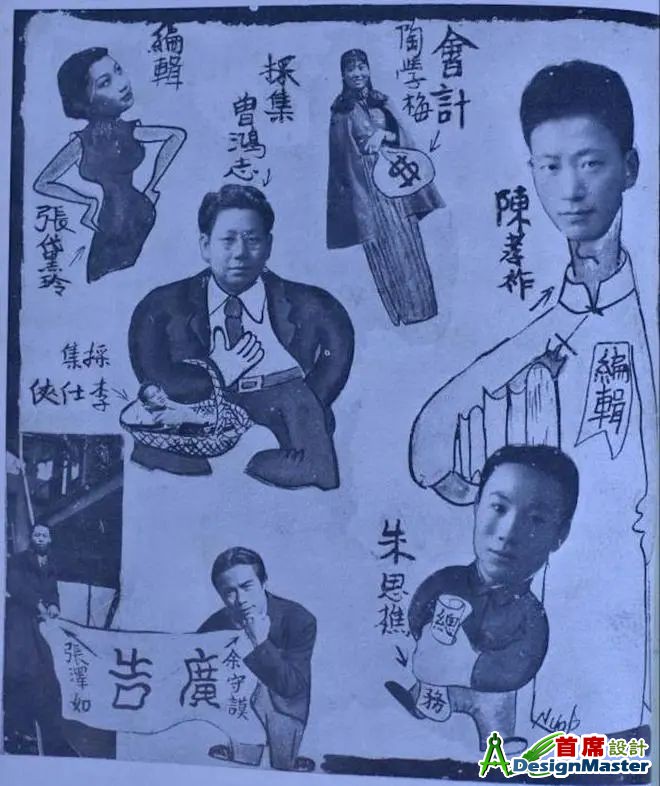 編輯
張黛玲
採集
曾鴻志
會計
陶學梅
陳孝祚
編輯
採集
李仕俠
朱思樵
總務
廣告
張澤如
余守謨
首席設計
DesignMaster